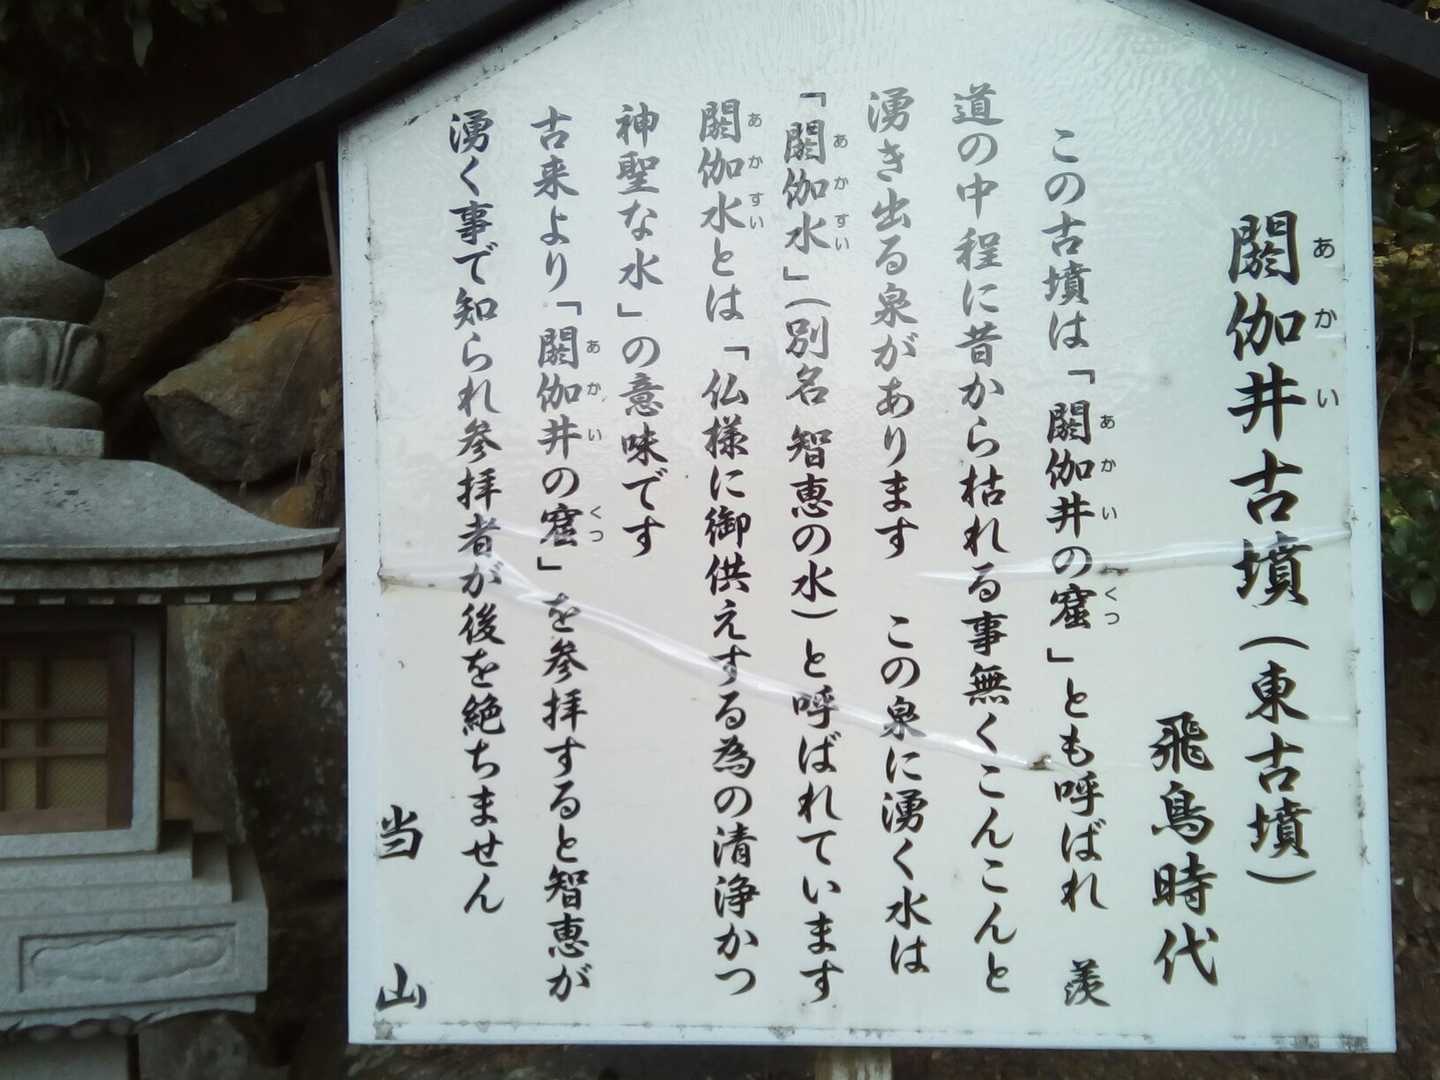 閼伽井古墳（東古墳）
あかい
飛鳥時代
この古墳は「閼伽井の窟」とも呼ばれ　羨
あかい　くつ
道の中程に昔から枯れる事無くこんこんと
湧き出る泉があります　この泉に湧く水は
「閼伽水」（別名 智恵の水）と呼ばれています
あかすい
閼伽水とは「仏様に御供えする為の清浄かつ
あかすい
神聖な水」の意味です
古来より「閼伽井の窟」を参拝すると智恵が
あかい　くつ
湧く事で知られ参拝者が後を絶ちません
当山